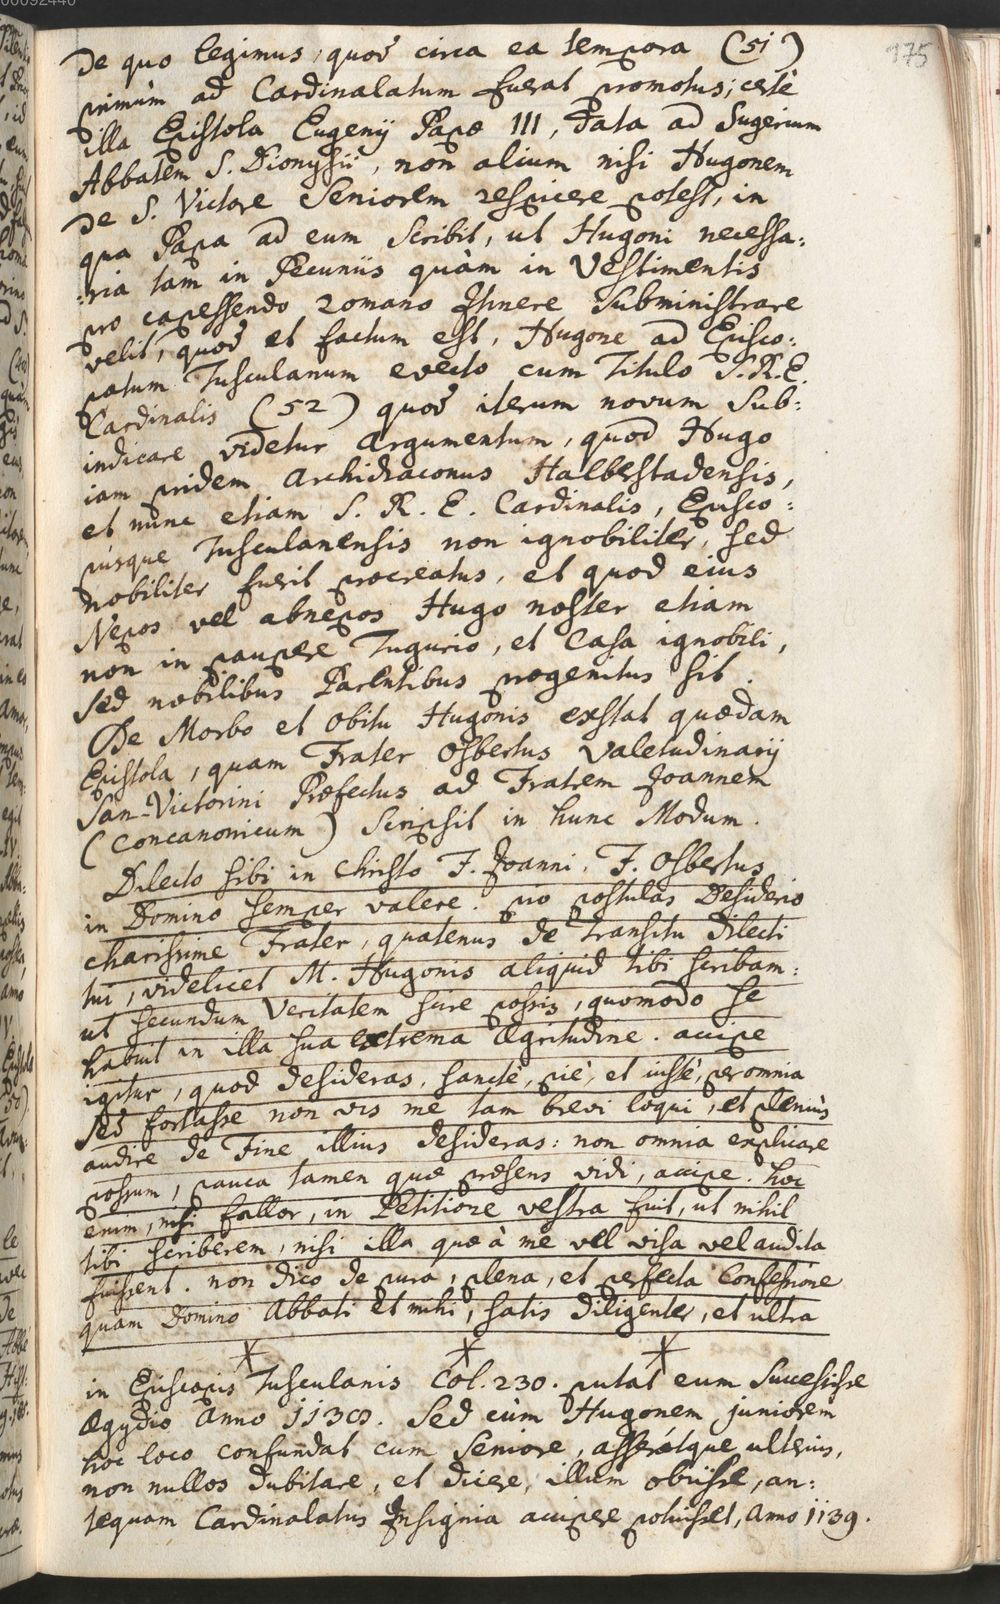 175
de quo legimus, quod circa ea tempora (51)
primùm ad Cardinalatum fuerat promotus; certè
illa Epistola Eugenij Papæ III, data ad Sugerium
Abbatem S. Dionysii, non alium nisi Hugonem
de S. Victore Seniorem respicere potest, in
qua Papa ad eum scribit, ut Hugoni necessa:
:ria tam in Pecuniis quàm in Vestimentis
pro capessendo romano Itinere Subministrare
velit, quod et factum est, Hugone ad Episco:
patum Tusculanum evecto cum Titulo S.R.E.
Cardinalis (52) quod iterum novum Sub:
indicare videtur argumentum, quod Hugo
iam pridem Archidiaconus Halberstadensis,
et nunc etiam S. R. E. Cardinalis, Episco:
pusque Tusculanensis non ignobiliter, sed
nobiliter fuerit procreatus, et quod eius
Nepos vel abnepos Hugo noster etiam
non in paupere Tugurio, et Casa ignobili,
sed nobilibus Parentibus progenitus sit.
De Morbo et obitu Hugonis exstat quædam
Epistola, quam Frater Osbertus Valetudinarij
San-Victorini Præfectus ad Fratrem Joannem
(Concanonicum) scripsit in hunc Modum.
Dilecto sibi in Christo F. Joanni, F. Osbertus
in Domino semper valere. pio postulas Desiderio
charissime Frater, quatenus de transitu dilecti
tui, videlicet M. Hugonis aliquid tibi scribam:
ut secundum Veritatem scire possis, quomodo se
habuit in illa sua extrema Ægritudine. accipe
igitur, quod desideras, sanctè, piè, et iustè, per omnia
sed fortasse non vis me tam brevi loqui, et pleniùs
audire de Fine illius desideras: non omnia explicare
possum, pauca tamen quæ præsens vidi, accipe. hoc
enim, nisi fallor, in Petitione vestra fuit, ut nihil
tibi scriberem, nisi illa quæ à me vel visa vel audita
fuissent. non dico de pura, plena, et perfecta Confessione
quam Domino Abbati et mihi, satis diligenter, et ultra
in Episcopis Tusculanis Col. 230. putat eum Successisse
Ægydio Anno 1130. Sed cùm Hugonem juniorem
hoc loco confundat cum Seniore, asseratque ulterius,
non nullos dubitare, et dicere, illum obiisse, an:
tequam Cardinalatus Insignia accipere potuisset, Anno 1139.